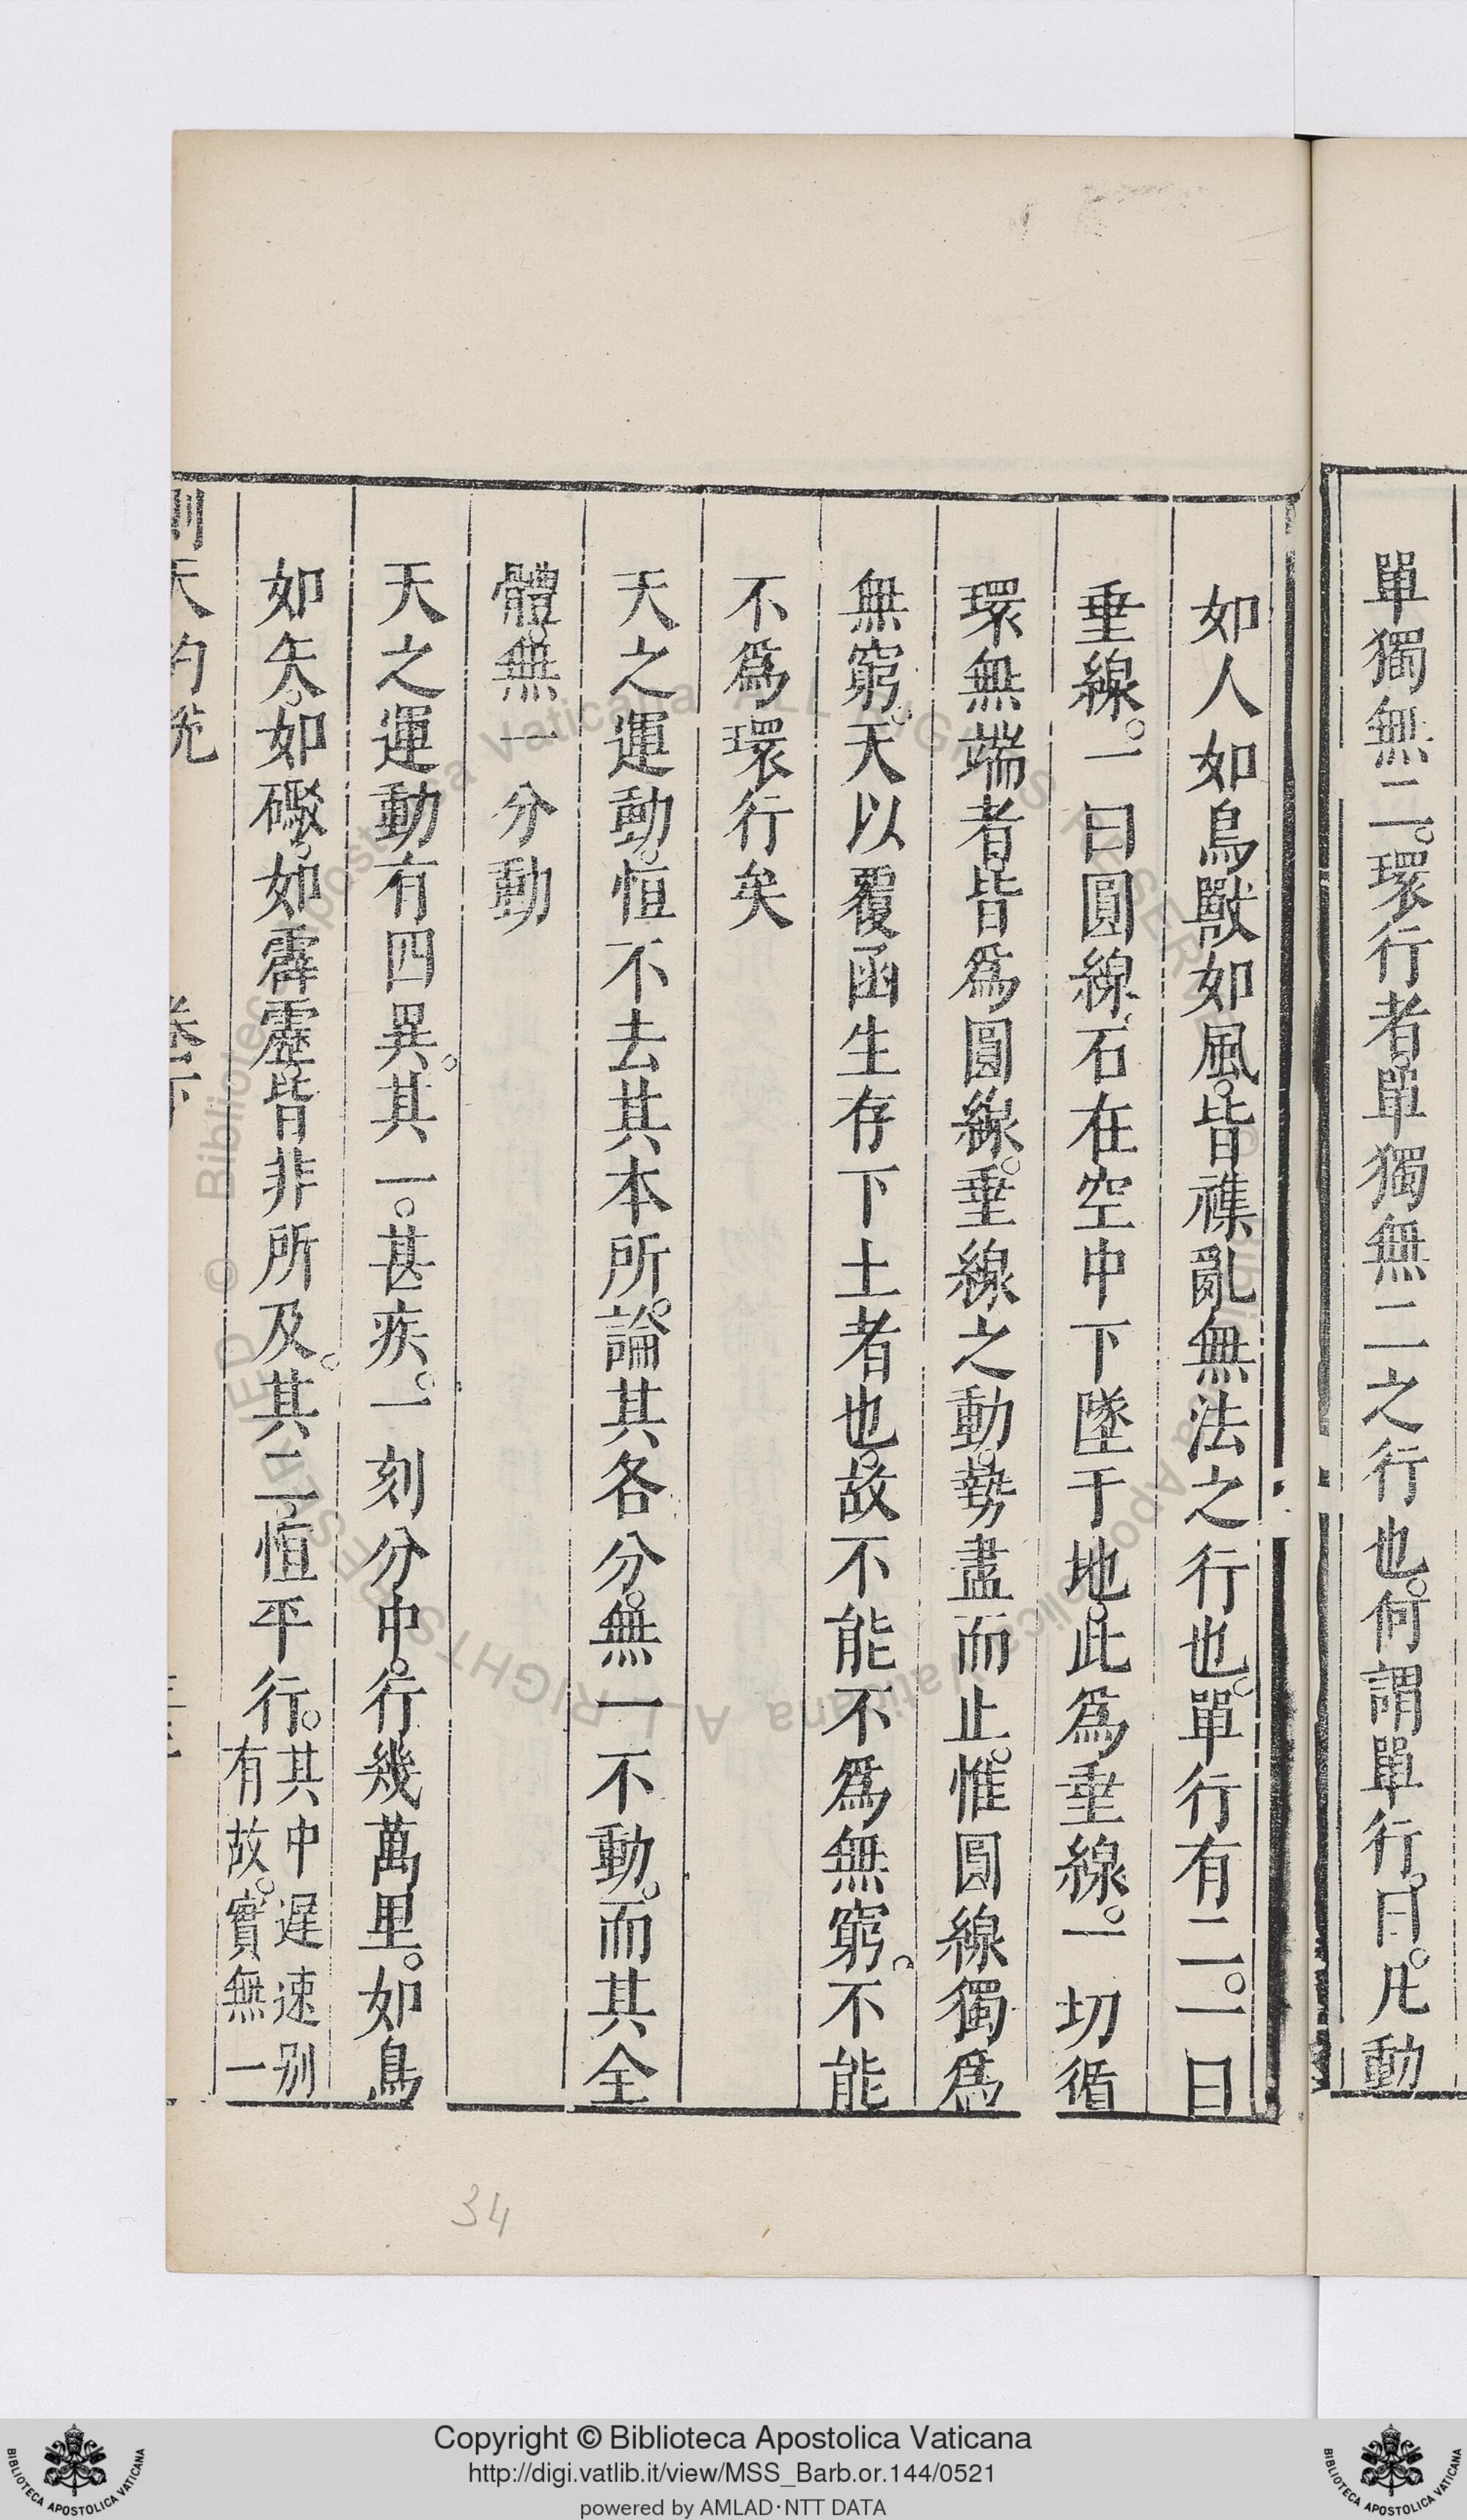 單獨無二。環行者。單獨無二之行也。何謂單行。曰。凡動
如人如鳥獸如風。皆襍亂無法之行也。單行有二。一曰
垂線。一曰圓線。石在空中下墜于地。此爲垂線。一切循
環無端者。皆爲圓線。垂線之動。勢盡而止。惟圓線獨爲
無窮。天以覆函生存下土者也。故不能不爲無窮。不能
不爲環行矣
天之運動。恒不去其本所。論其各分。無一不動。而其全
體。無一分動
天之運動有四異。其一。甚疾。一刻分中。行幾萬里。如鳥
如矢。如礮。如霹靂。皆非所及。其二。恒平行。其中遲速別
有故。實無一
則天約說 卷下
34
© Biblioteca Apostolica Vaticana ALL RIGHTS RESERVED
Copyright © Biblioteca Apostolica Vaticana
http://digi.vatlib.it/view/MSS_Barb.or.144/0521
powered by AMLAD·NTT DATA
BIBLIOTECA APOSTOLICA VATICANA
BIBLIOTECA APOSTOLICA VATICANA